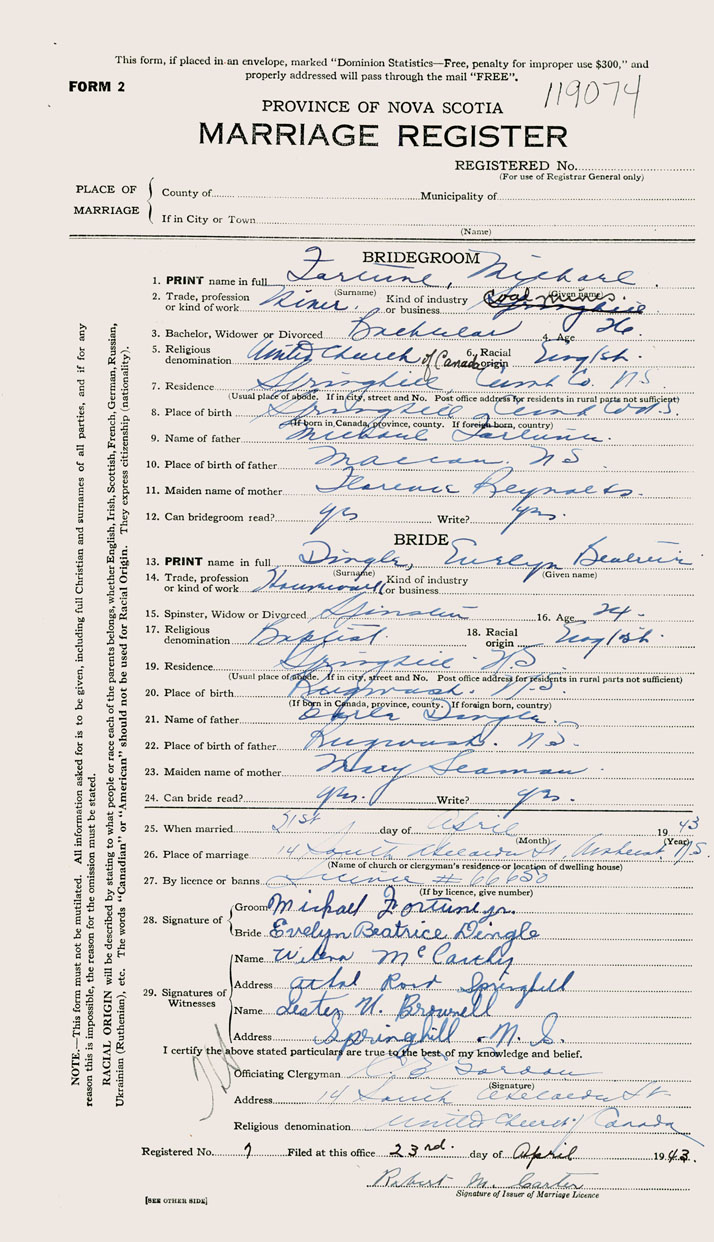 This form, if placed in an envelope, marked "Dominion Statistics—Free, penalty for improper use $300," and
properly addressed will pass through the mail "FREE".
FORM 2
119074
PROVINCE OF NOVA SCOTIA
MARRIAGE REGISTER
REGISTERED No.
(For use of Registrar General only)
PLACE OF MARRIAGE
County of Municipality of
If in City or Town
(Name)
BRIDEGROOM
1. PRINT name in full Fortune, Michael
(Surname) (Given name)
2. Trade, profession or kind of work Miner. Kind of industry or business Coal mines. Springhill
3. Bachelor, Widower or Divorced Bachelor 4. Age 26
5. Religious denomination United Church of Canada 6. Racial origin English.
7. Residence Springhill Cumb Co. N.S.
(Usual place of abode. If in city, street and No. Post office address for residents in rural parts not sufficient)
8. Place of birth Springhill Cumb Co N.S.
(If born in Canada, province, county. If foreign born, country)
9. Name of father Michael Fortune.
10. Place of birth of father Maccan. N S
11. Maiden name of mother Florence Reynolds.
12. Can bridegroom read? yes Write? yes.
BRIDE
13. PRINT name in full Dingle, Evelyn Beatrice
(Surname) (Given name)
14. Trade, profession or kind of work Housework Kind of industry or business
15. Spinster, Widow or Divorced Spinster 16. Age 24.
17. Religious denomination Baptist. 18. Racial origin English.
19. Residence Springhill N S
(Usual place of abode. If in city, street and No. Post office address for residents in rural parts not sufficient)
20. Place of birth Pugwash. N.S.
(If born in Canada, province, county. If foreign born, country)
21. Name of father Dingle.
22. Place of birth of father Pugwash. N.S.
23. Maiden name of mother Mary Seaman.
24. Can bride read? yes. Write? yes.
25. When married 21st day of April 1943
(Month) (Year)
26. Place of marriage 14 South St, Amherst N.S.
(Name of church or clergyman's residence or location of dwelling house)
27. By licence or banns License # 66650
(If by licence, give number)
28. Signature of
Groom Michael Fortune jr.
Bride Evelyn Beatrice Dingle
29. Signatures of Witnesses
Name Wilena McCarthy
Address Athol Road Springhill
Name Lester U. Brownell
Address Springhill N. S.
I certify the above stated particulars are true to the best of my knowledge and belief.
Officiating Clergyman Gordon
(Signature)
Address 14 South St
Religious denomination United Church of Canada
Registered No. 7 Filed at this office 23rd. day of April 1943.
Robert M. Carter
Signature of Issuer of Marriage Licence
[SEE OTHER SIDE]
NOTE.—This form must not be mutilated. All information asked for is to be given, including full Christian and surnames of all parties, and if for any
reason this is impossible, the reason for the omission must be stated.
RACIAL ORIGIN will be described by stating to what people or race each of the parents belongs, whether English, Irish, Scottish, French, German, Russian,
Ukrainian (Ruthenian), etc. The words "Canadian" or "American" should not be used for Racial Origin. They express citizenship (nationality).